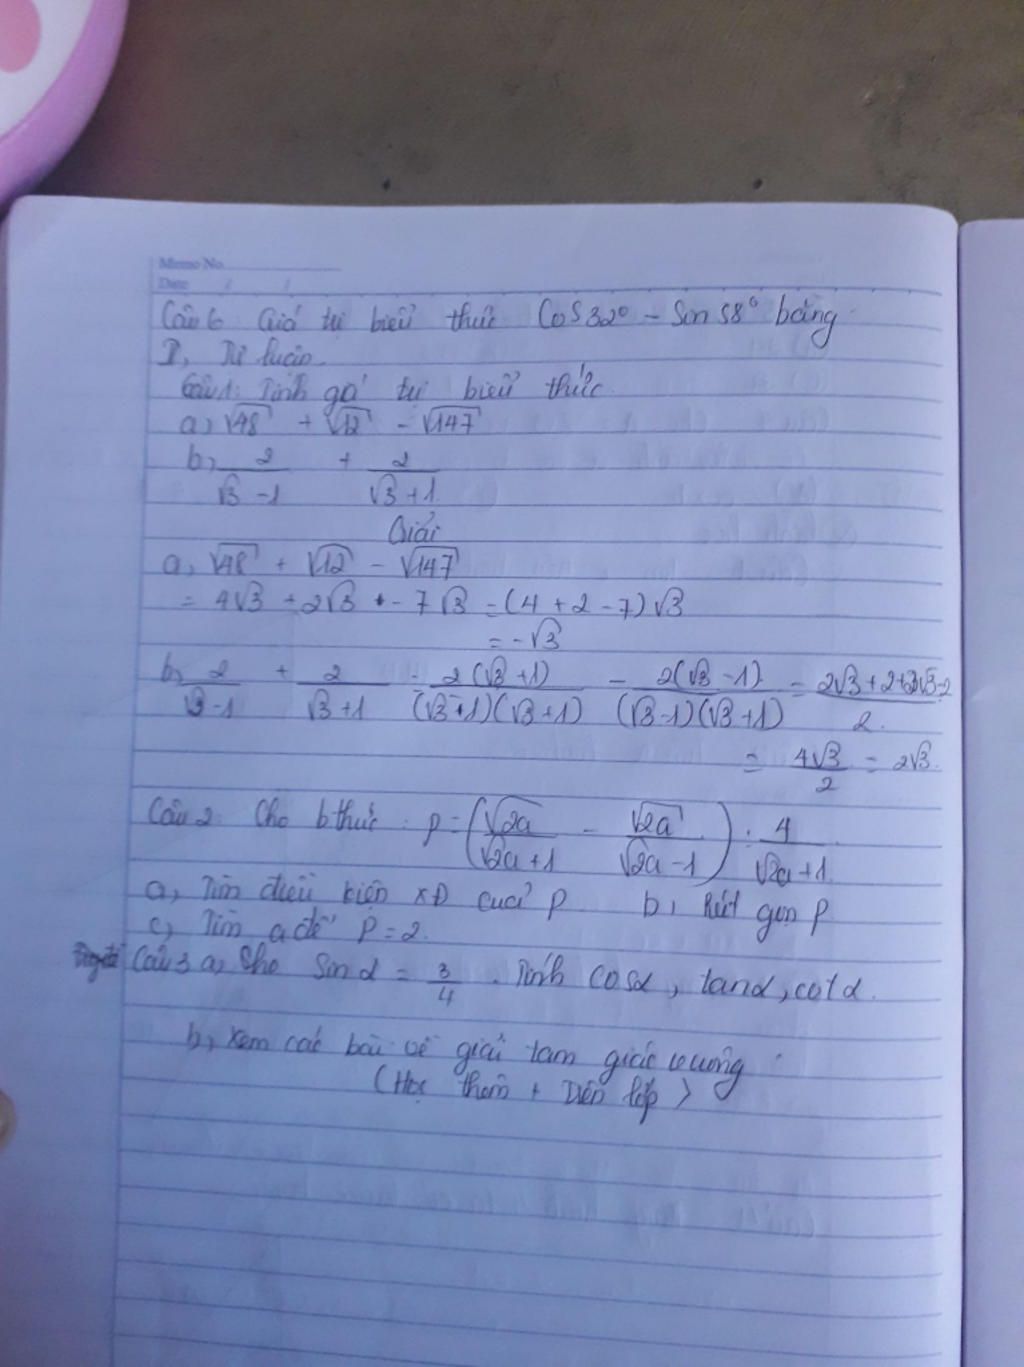 Memo No.
Date / /
Câu 6 Giá trị biểu thức Cos 32° - Sin 58° bằng
I, Tự luận
Câu 1: Tính giá trị biểu thức
a, √48 + √12 - √147
b, 2/(√3 - 1) + 2/(√3 + 1)
Giải
a, √48 + √12 - √147
= 4√3 + 2√3 - 7√3 = (4 + 2 - 7)√3
= -√3
b, 2/(√3 - 1) + 2/(√3 + 1) = 2(√3 + 1)/(√3 + 1)(√3 + 1) - 2(√3 - 1)/(√3 - 1)(√3 + 1) = (2√3 + 2 + 2√3 - 2)/2
= 4√3/2 = 2√3.
Câu 2: Cho b thức: P = (√2a/(√2a + 1) - √2a/(√2a - 1)) : 4/(√2a + 1)
a, Tìm điều kiện XĐ cuả P b, Rút gọn P
c, Tìm a để P = 2.
Câu 3 a, Cho Sin α = 3/4. Tính cos α, tan α, cot α.
b, Xem các bài về giải tam giác vuông
(Học thêm + trên lớp)